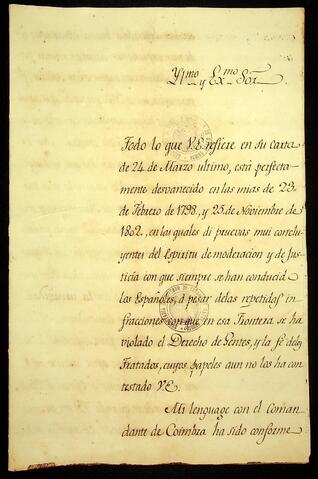 Yl.mo y Ex.mo Sor.
Todo lo que V.E refiere en su carta
de 24 de Marzo ultimo, está perfecta-
mente desvanecido en las mias de 23
de Febrero de 1798, y 25 de Noviembre de
1802, en las quales di pruevas mui conclu-
yentes del Espiritu de moderacion y de Jus-
ticia con que siempre se han conducid
los Españoles, á pesar delas repetidas in-
fracciones con que en esa Frontera se ha
violado el Derecho de Gentes, y la fé delos
Tratados, cuyos papeles aun no los ha con-
textado V.E.
Mi lenguage con el Coman-
dante de Coimbra ha sido conforme